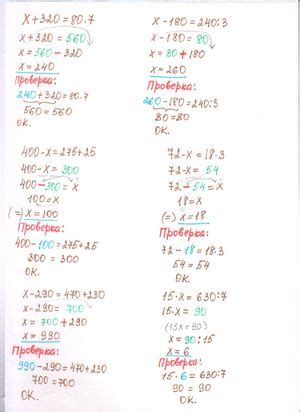 x+320=80·7
x+320=560
x=560-320
x=240
Проверка:
240+320=80·7
560=560
ОК.
x-180=240:3
x-180=80
x=80+180
x=260
Проверка:
260-180=240:3
80=80
ОК.
400-x=275+25
400-x=300
400-300=x
100=x
(=) x=100
Проверка:
400-100=275+25
300=300
ОК.
72-x=18·3
72-x=54
72-54=x
18=x
(=) x=18
Проверка:
72-18=18·3
54=54
ОК.
x-290=470+230
x-290=700
x=700+290
x=990
Проверка:
990-290=470+230
700=700
ОК.
15·x=630:7
15·x=90
(15x=90)
x=90:15
x=6
Проверка:
15·6=630:7
90=90
ОК.